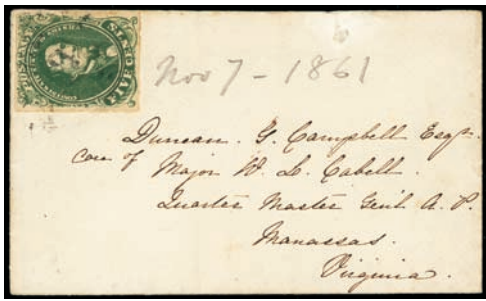 POSTAGE
FIVE CENTS
Nov 7 - 1861
Duncan. G. Campbell Esqr.
care of Major W. L. Cabell.
Quarter Master Genl A. P.
Manassas.
Virginia.